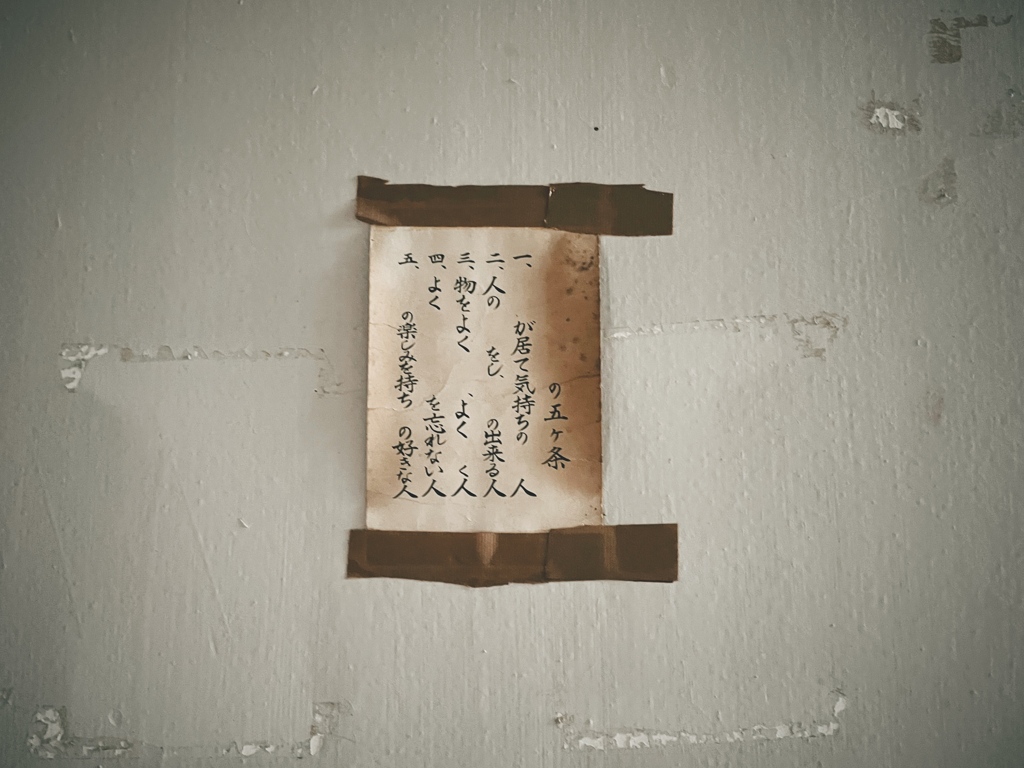 の五ヶ条
一、 が居て気持ちの 人
二、人の をし、 の出来る人
三、物をよく 、よく く人
四、よく を忘れない人
五、 の楽しみを持ち の好きな人